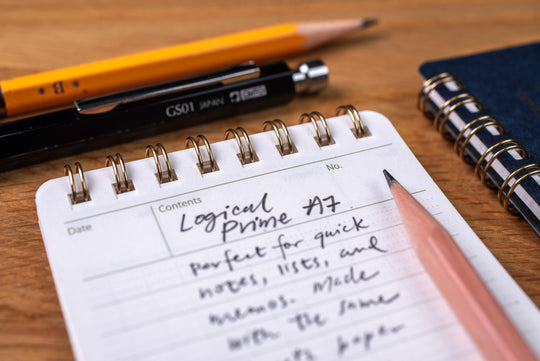 B
GS01 JAPAN
No.
Contents
Date
Logical
Prime A7.
perfect for quick
notes, lists, and
memos. Made
with the same
paper